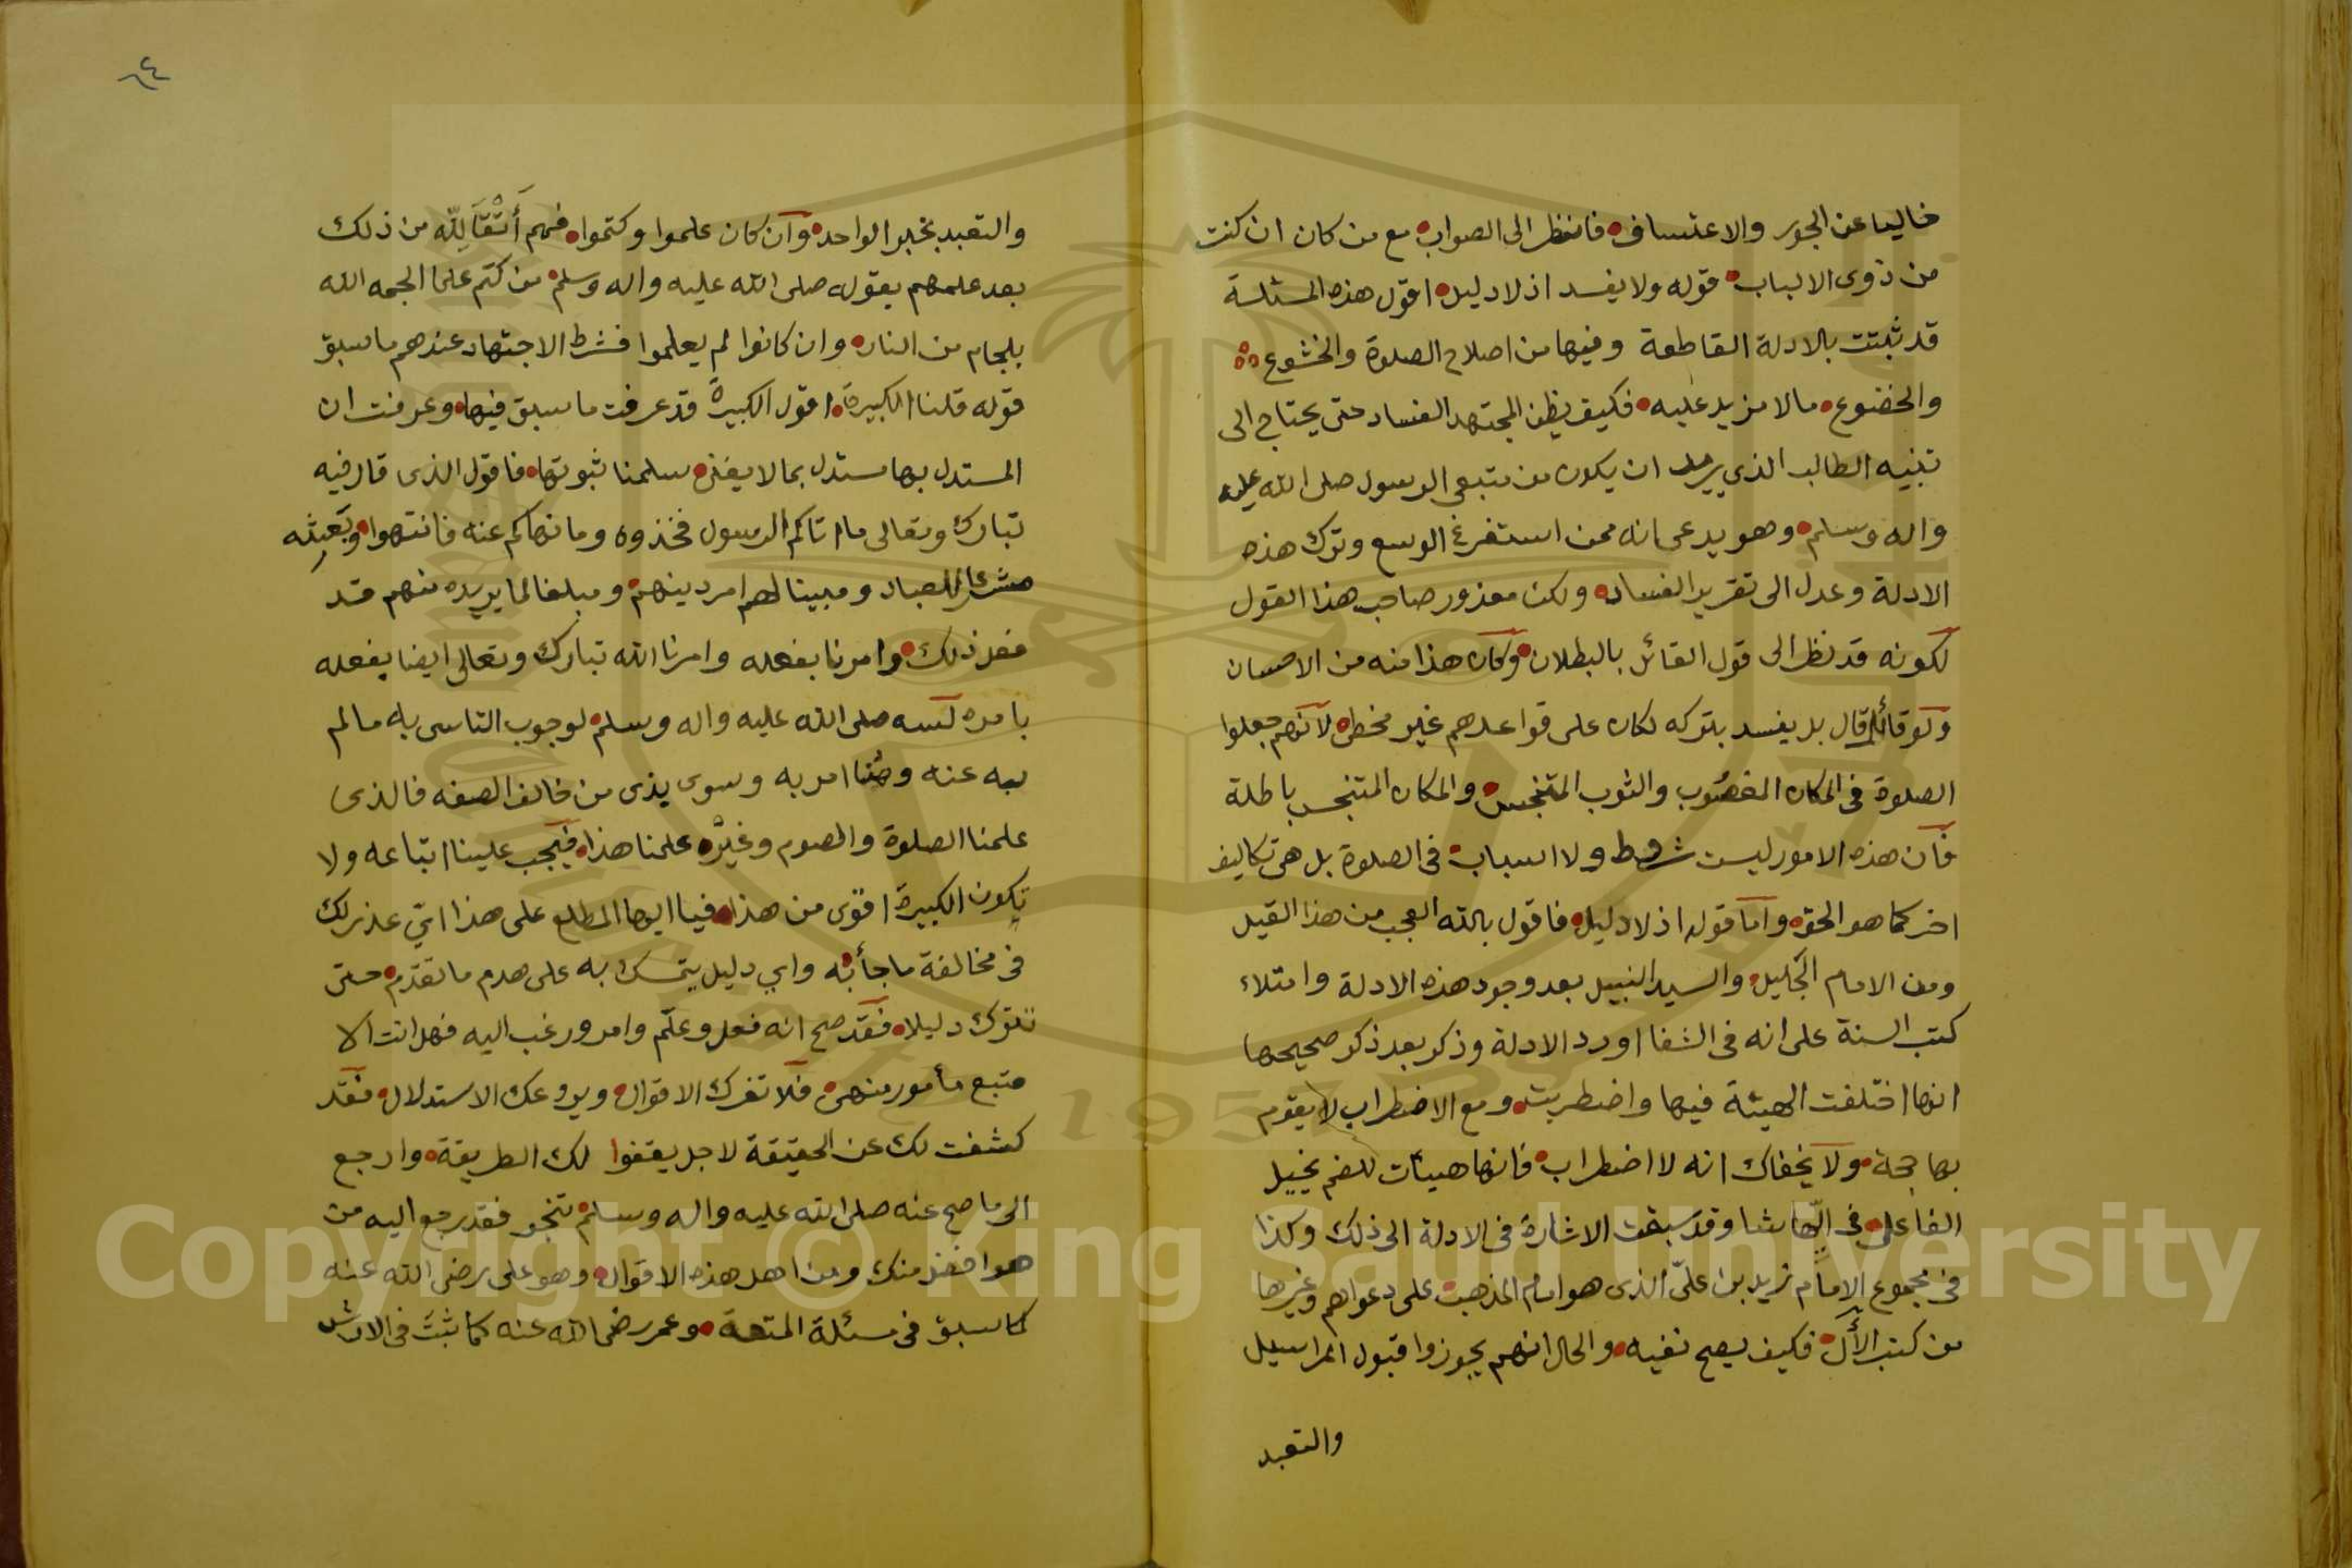 خاليا عن الجور والاعتساف فانظر الى الصواب مع من كان ان كنت
من ذوى الالباب قوله ولا يفسد اذ لا دليل اقول هذه المسئلة
قد ثبتت بالادلة القاطعة وفيها من اصلاح الصلوة والخشوع
والخضوع ما لا مزيد عليه فكيف يظن المجتهد الفساد حتى يحتاج الى
تنبيه الطالب الذي يريد ان يكون من متبعى الرسول صلى الله عليه
واله وسلم وهو يدعى انه ممن استفرغ الوسع وترك هذه
الادلة وعدل الى تقرير الفساد ولكن معذور صاحب هذا القول
لكونه قد نظر الى قول القائل بالبطلان وكان هذا منه من الاحسان
ولو قائل قال بل يفسد بتركه لكان على قواعدهم غير مخطى لانهم جعلوا
الصلوة فى المكان المغصوب والثوب المتنجس والمكان المتنجس باطلة
فان هذه الامور ليست شروط ولا اسباب فى الصلوة بل هى تكاليف
اخر كما هو الحق واما قوله اذ لا دليل فاقول بالله العجب من هذا القيل
ومن الامام الجليل والسيد النبيل بعد وجود هذه الادلة وامتلاء
كتب السنة على انه فى الشفا اورد الادلة وذكر بعد ذكر صحيحها
انها اختلفت الهيئة فيها واضطربت ومع الاضطراب لا يقوم
بها حجة ولا يخفاك انه لا اضطراب فانها هيئات للضم يخيل
الفاعل فى ايها شا وقد سبقت الاشارة فى الادلة الى ذلك وكذا
فى مجموع الامام زيد بن على الذى هو امام المذهب على دعواهم وغيرها
من كتب الآل فكيف يصح نفيه والحال انهم يجوزوا قبول المراسيل
والتعبد
٦٤
والتعبد بخبر الواحد وان كان علموا وكتموا فهم أتقا لله من ذلك
بعد علمهم بقوله صلى الله عليه واله وسلم من كتم علما الجمه الله
بلجام من النار وان كانوا لم يعلموا فشرط الاجتهاد عندهم ما سبق
قوله قلنا الكبيرة اقول الكبيرة قد عرفت ما سبق فيها وعرفت ان
المستدل بها مستدل بما لا يغنى سلمنا ثبوتها فاقول الذى قال فيه
تبارك وتعالى ما اتاكم الرسول فخذوه وما نهاكم عنه فانتهوا وبعثه
للعباد ومبينا لهم امر دينهم ومبلغا لما يريده منهم قد
فعل ذلك وامرنا بفعله وامرنا الله تبارك وتعالى ايضا بفعله
بامره صلى الله عليه واله وسلم لوجوب التاسى به ما لم
عنه وهنا امر به وسوى يذى من خالف الصفه فالذى
علمنا الصلوة والصوم وغيره علمنا هذا فيجب علينا اتباعه ولا
تكون الكبيرة اقوى من هذا فيا ايها المطلع على هذا اي عذر لك
فى مخالفة ما جأ به واي دليل يتمسك به على هدم ما تقدم حتى
تترك دليلا فقد صح انه فعل وعلم وامر ورغب اليه فهل انت الا
متبع مأمور منهى فلا تغرك الاقوال ويروعك الاستدلال فقد
كشفت لك عن الحقيقة لاجل يقفوا لك الطريقة وارجع
الى ما صح عنه صلى الله عليه واله وسلم تنجو فقد رجع اليه من
هو افضل منك ومن اهل هذه الاقوال وهو على رضى الله عنه
كما سبق فى مسئلة المتعة وعمر رضى الله عنه كما ثبت فى الارش
Copyright © King Saud University
1957